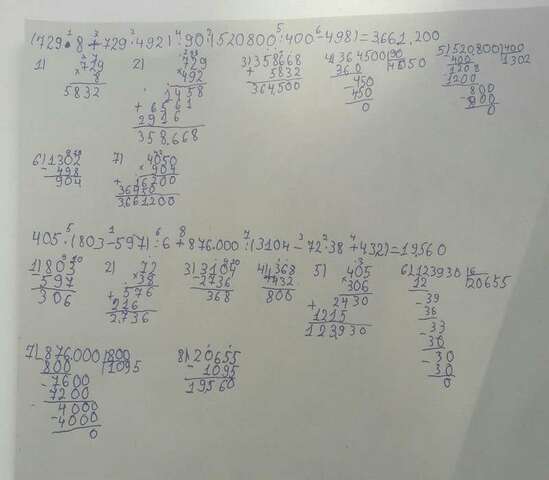 (729·8+729·492):90·(520800:400-498)=3.661.200
1) 729 2) 729 3) 358668 4) 364500|90 5) 520800|400
×8 ×492 +5832 360 4050 400 1302
5832 1458 364.500 -450 1208
+6561 450 1200
2916 0 -800
358.668 800
0
6) 1302 7) 4050
-498 ×904
904 +16200
36450
3661200
405·(803-597):6+876.000:(3104-72·38+432)=19560
1) 803 2) 72 3) 3104 4) 368 5) 405 6) 123930|6
-597 ×38 -2736 +432 ×306 12 20655
306 +576 368 800 +2430 -39
216 1215 36
2.736 123930 -33
30
-30
30
0
7) 876.000|800 8) 20655
800 1095 -1095
-7600 19560
7200
-4000
4000
0